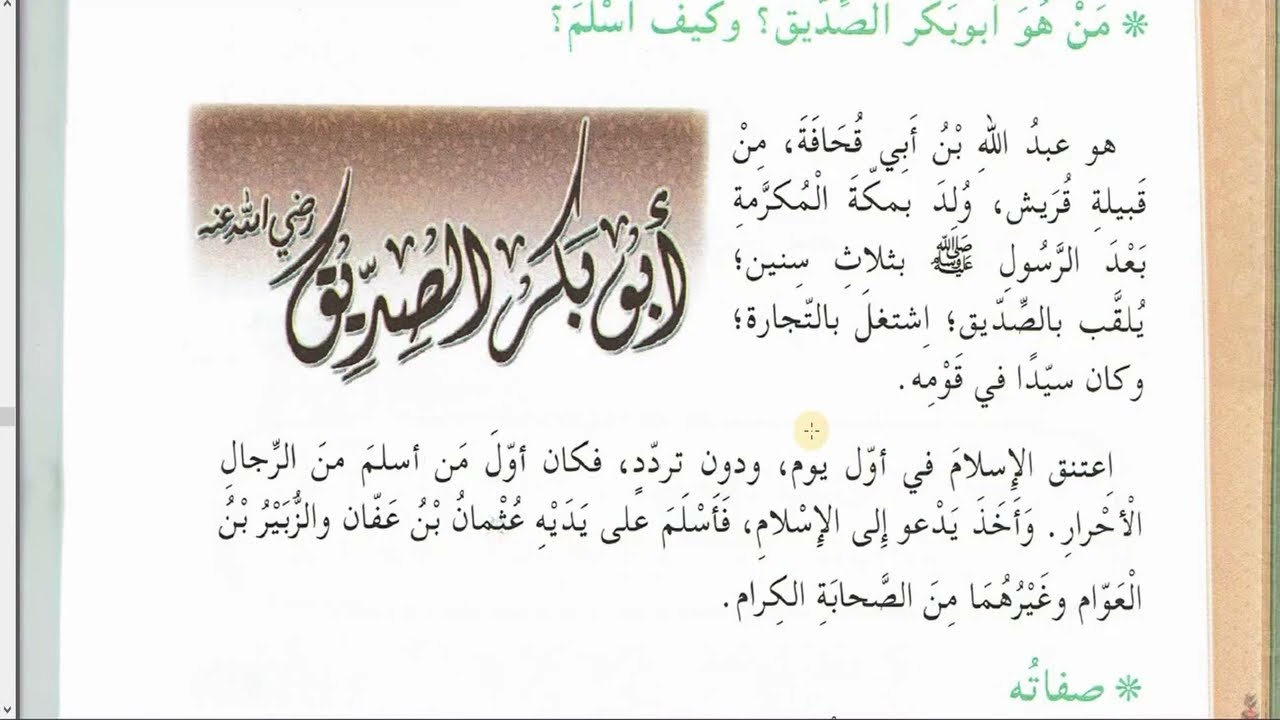 * مَنْ هُوَ أبوبَكر الصِّدّيق؟ وكَيفَ أسْلَمَ؟
هو عبدُ اللهِ بْنُ أَبِي قُحَافَةَ، مِنْ
قَبيلةِ قُرَيش، وُلِدَ بمكّةَ الْمُكرَّمةِ
بَعْدَ الرَّسُولِ ﷺ بثلاثِ سِنين؛
يُلقَّب بالصِّدّيق؛ اِشتغلَ بالتّجارة؛
وكان سيّدًا في قَوْمِه.
أبو بَكر الصِّدِّيق رضي الله عنه
اِعتنق الإِسلامَ في أوّل يوم، ودون تردّدٍ، فكان أوّلَ مَن أسلمَ منَ الرِّجالِ
الْأَحْرارِ. وَأَخَذَ يَدْعو إِلى الإِسْلامِ، فَأَسْلَمَ على يَدَيْهِ عُثْمانُ بْنُ عَفّان والزُّبَيْرُ بْنُ
الْعَوّام وغَيْرُهُمَا مِنَ الصَّحابَةِ الكِرام.
* صفاتُه